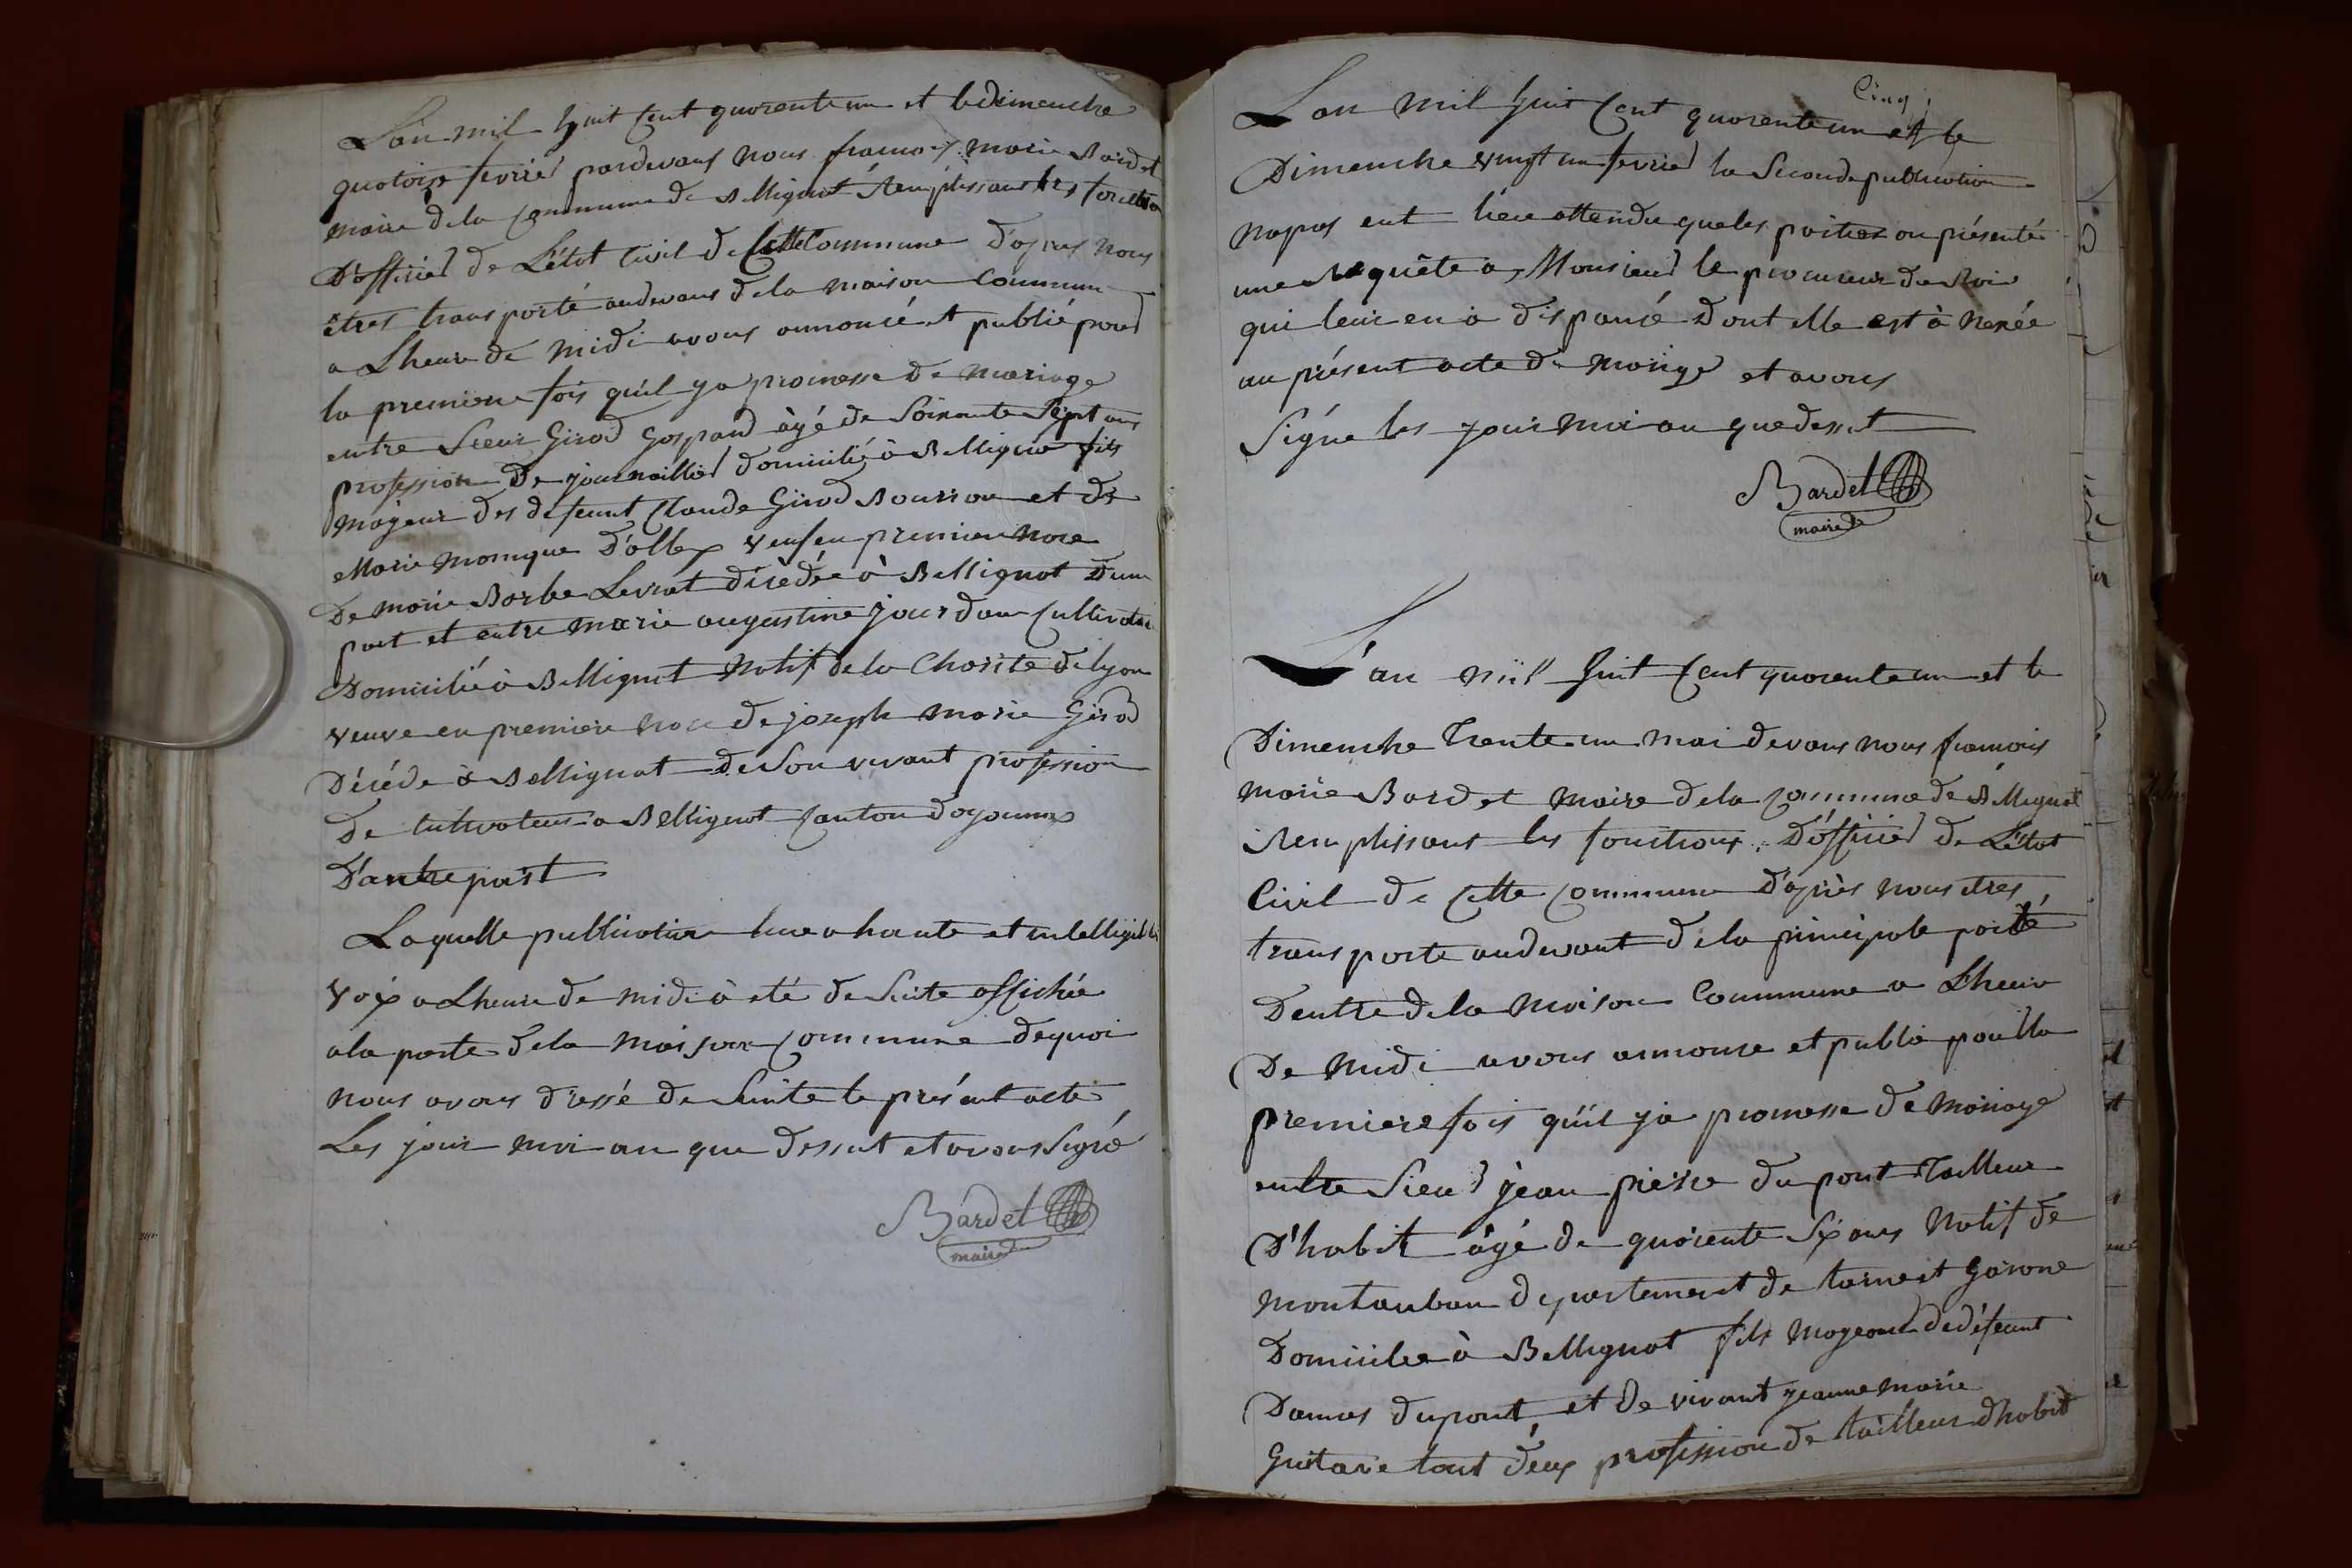 L'an mil huit Cent quarente un et le dimenche
quatorze fevrier pardevans nous francois marie Bardet
maire de la Commune de Bellignat Remplissans les fonction
D'officier de L'état Civil de Cette Commune d'apres nous
êtres transporté audevans de la maison Commune
a Lheure de midi avons annoncé et publié pour
la premiere fois quil ya promesse de mariage
entre Sieur Girod Gaspard âgé de Soixante Sept ans
profession De journaillier domicilié à Bellignat fils
majeur des defeunt Claude Girod Bourron et de
Marie monique D'allex veuf en premiere noce
De marie Barbe Levrat décédée à Bellignat D'une
part et entre marie augustine jourdan Cultivatrice
Domiciliée à Bellignat Natif de la Charite de lyon
veuve en premiere noce de joseph marie Girod
Décéde à Bellignat de Son vivant profession
De Cultivateur a Bellignat Canton d'oyonnax
D'autre part
Laquelle publication lue a haute et intelligible
voix a Lheure de midi à eté de Suite affichée
a la porte de la maison Commune de quoi
nous avons dressé de Suite le présent acte
Les jour moi an que dessut et avons Signé
Bardet
maire
Cinq
L'an mil huit Cent quarente un et le
Dimenche vingt un fevrier la Seconde publication
na pas eut lieu attendu que les parties on présenté
une Requête a Monsieur le procureur du Roi
qui leur en à dispancé Dont elle est à nexée
au présent acte de mariage et avons
Signé les jour moi an que dessut
Bardet
maire
L'an mil huit Cent quarente un et le
Dimenche Trente un mai devans nous francois
marie Bardet maire de la Commune de Bellignat
Remplissant les fonctions D'officier de L'état
Civil de Cette Commune d'après nous etres
transporte audevant de la principale porte
D'entre de la maison Commune a Lheure
De midi avons annonce et publié pour la
premiere fois qu'il ya promesse de mariage
entre Sieur jean pierre dupont Tailleur
D'habit âgé de quarente Six ans Natif de
montauban département de tarne et Garone
Domicilié à Bellignat fils mageur de défeunt
Damas dupont, et de vivant jeanne marie
Guitare tout deux profession de tailleur d'habit